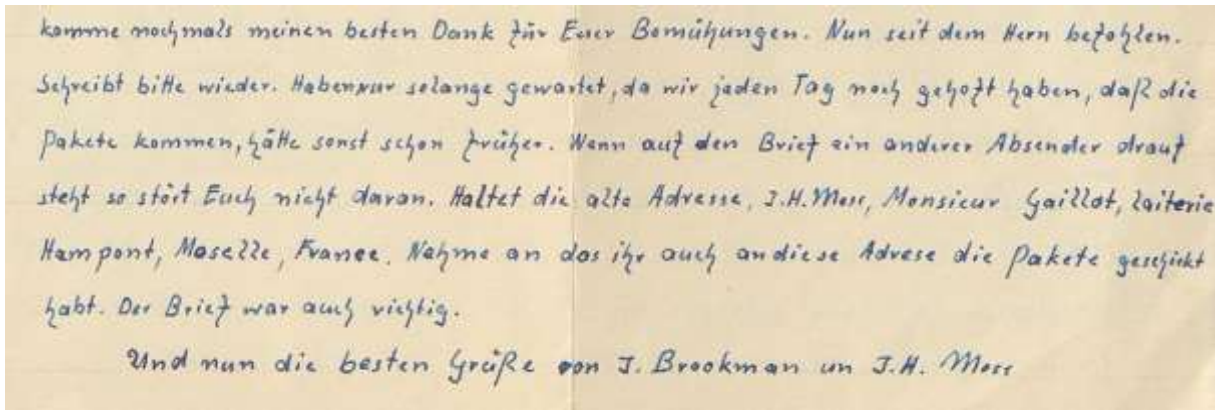 komme nochmals meinen besten Dank für Euer Bemühungen. Nun seit dem Hern befohlen.
Schreibt bitte wieder. Haben nur solange gewartet, da wir jeden Tag noch gehoft haben, daß die
Pakete kommen, hätte sonst schon früher. Wenn auf den Brief ein anderer Absender drauf
steht so stört Euch nicht daran. Haltet die alte Adresse, J.H. Moss, Monsieur Gaillot, Laiterie
Hampont, Moselle, France. Nehme an das ihr auch an diese Adrese die Pakete geschickt
habt. Der Brief war auch richtig.
Und nun die besten Grüße von J. Brookman un J.H. Moss